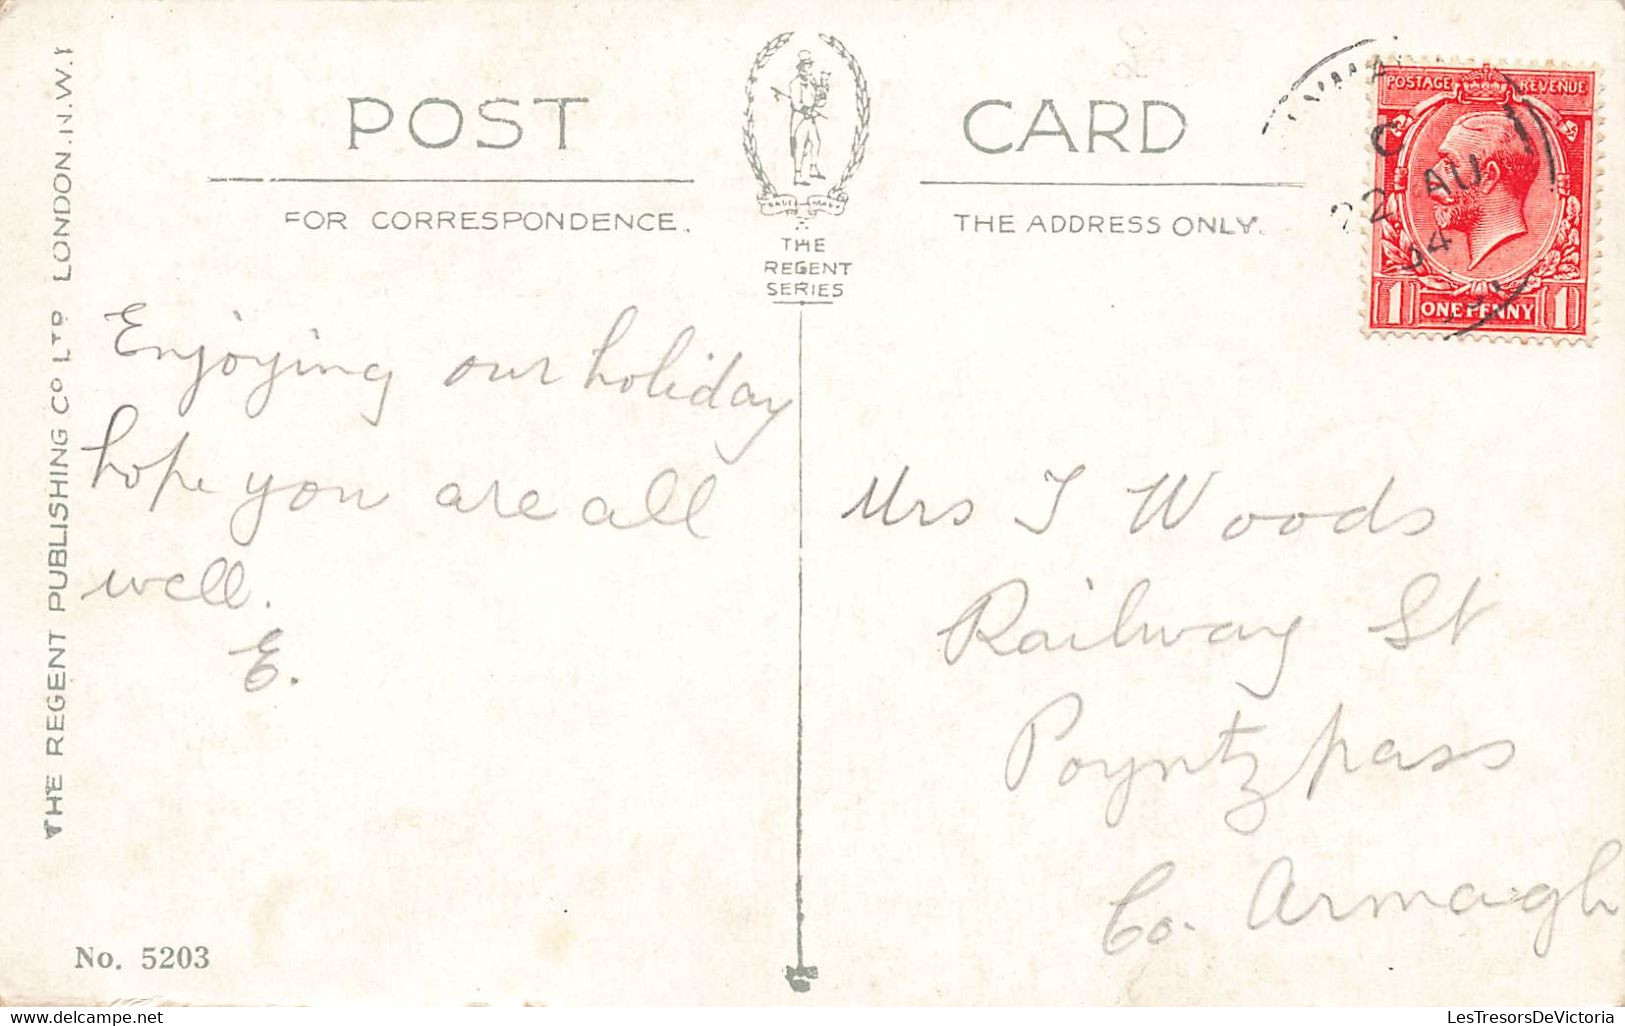 POST CARD
FOR CORRESPONDENCE.
THE ADDRESS ONLY.
TRADE MARK
THE
REGENT
SERIES
THE REGENT PUBLISHING Co LTD LONDON. N.W.1
POSTAGE REVENUE
1 ONE PENNY 1
C
22 AU
34
Enjoying our holiday
hope you are all
well.
E.
Mrs J Woods
Railway St
Poyntzpass
Co. Armagh
No. 5203
www.delcampe.net
LesTresorsDeVictoria